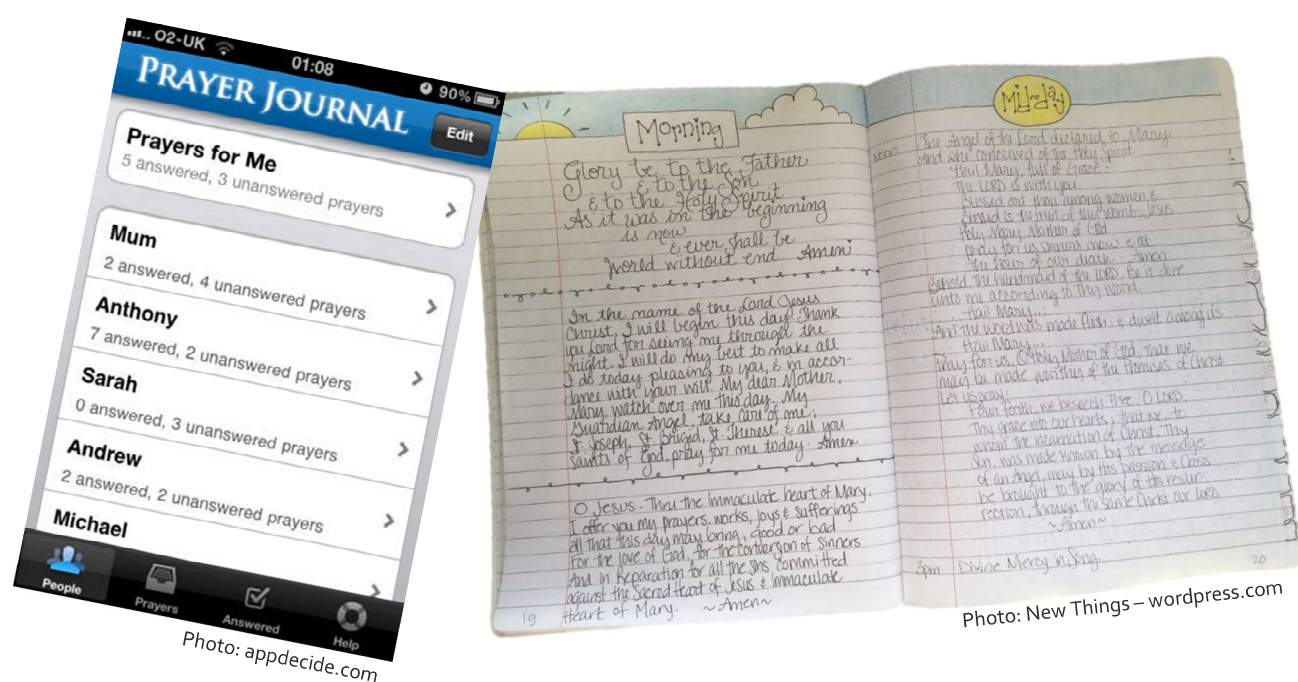 O2-UK
01:08
90%
PRAYER JOURNAL
Edit
Prayers for Me
5 answered, 3 unanswered prayers
Mum
2 answered, 4 unanswered prayers
Anthony
7 answered, 2 unanswered prayers
Sarah
0 answered, 3 unanswered prayers
Andrew
2 answered, 2 unanswered prayers
Michael
People
Prayers
Answered
Help
Photo: appdecide.com
Morning
Glory be to the Father
& to the Son
& to the Holy Spirit
As it was in the beginning
is now
& ever shall be
World without end. Amen
In the name of the Lord Jesus
Christ, I will begin this day. Thank
you Lord for seeing me through the
night. I will do my best to make all
I do today pleasing to you, & in accor-
dance with your will. My dear Mother,
Mary, watch over me this day. My
Guardian Angel, take care of me;
St Joseph, St Brigid, St Therese & all you
Saints of God, pray for me today. Amen
O Jesus - Thru the Immaculate heart of Mary,
I offer you my prayers, works, joys & sufferings
all that this day may bring, good or bad
for the love of God, for the conversion of Sinners
And in Reparation for all the sins committed
against the Sacred Heart of Jesus & Immaculate
Heart of Mary. ~Amen~
19
Mid-day
Noon
The Angel of the Lord declared to Mary:
And she conceived of the Holy Spirit
Hail Mary, full of Grace -
The LORD is with you.
Blessed art thou among women &
Blessed is the fruit of thy womb, Jesus
Holy Mary, Mother of God
pray for us sinners now & at
the hour of our death. Amen
Behold the handmaid of the LORD. Be it done
unto me according to Thy Word.
Hail Mary...
And the Word was made flesh & dwelt among us
Hail Mary...
Pray for us, O Holy Mother of God, that we
may be made worthy of the Promises of Christ
Let us pray:
Pour forth, we beseech Thee, O LORD,
Thy grace into our hearts; that we, to
whom the incarnation of Christ, Thy
Son, was made known by the message
of an Angel, may by His passion & Cross
be brought to the glory of His resur-
rection, through the same Christ our LORD
~Amen~
3pm Divine Mercy in Song.
20
Photo: New Things – wordpress.com